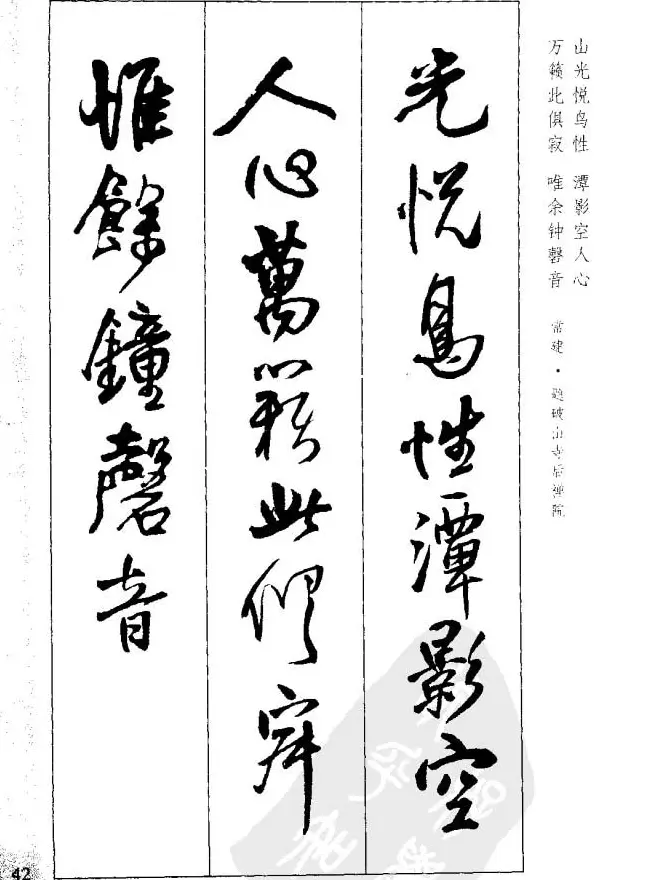 山光悦鸟性 潭影空人心
万籁此俱寂 唯余钟磬音
常建·题破山寺后禅院
光悦鳥性潭影空
人心萬籟此俱寂
惟餘鐘磬音
42